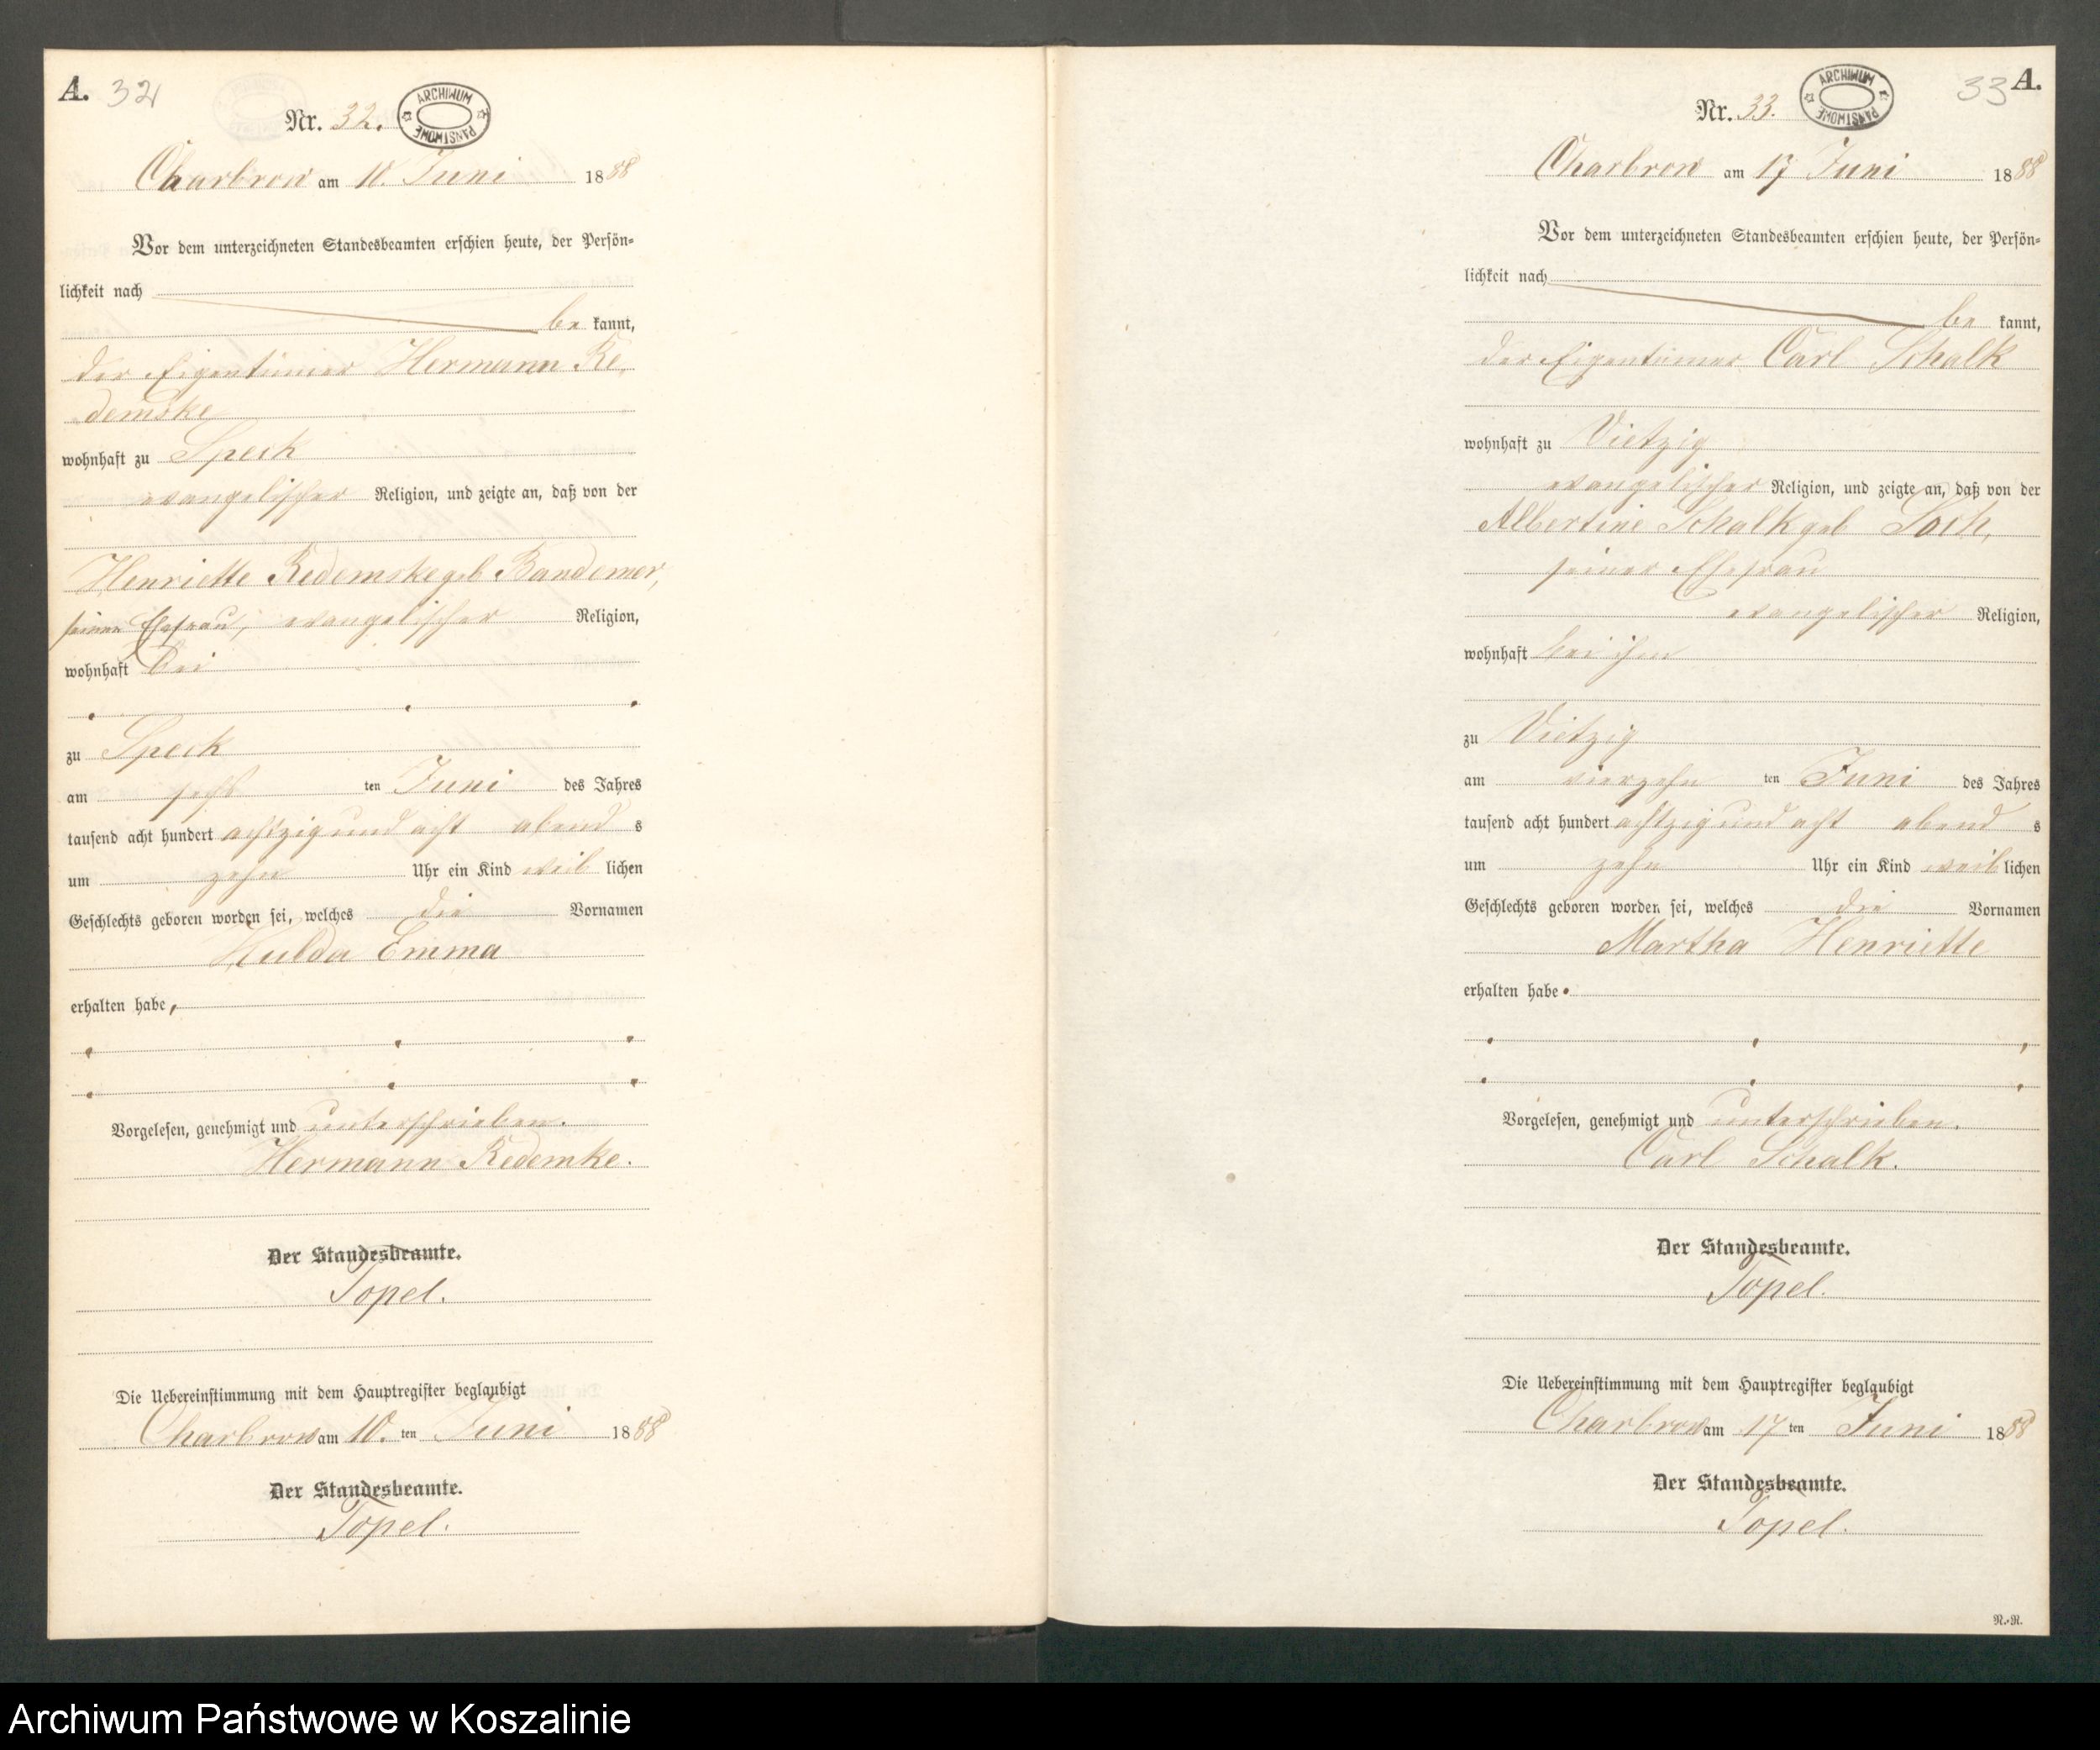 A. 32
Nr. 32.
ARCHIWUM PAŃSTWOWE
Charbrow am 10. Juni 1888
Vor dem unterzeichneten Standesbeamten erschien heute, der Persön-
lichkeit nach
be kannt,
der Eigentümer Hermann Re-
demske
wohnhaft zu Speck
evangelischer Religion, und zeigte an, daß von der
Henriette Redemske geb Bandemer,
seiner Ehefrau, evangelischer Religion,
wohnhaft bei
zu Speck
am sechs ten Juni des Jahres
tausend acht hundert achtzig und acht abend s
um zehn Uhr ein Kind weib lichen
Geschlechts geboren worden sei, welches die Vornamen
Hulda Emma
erhalten habe,
Vorgelesen, genehmigt und unterschrieben.
Hermann Redemke.
Der Standesbeamte.
Topel.
Die Uebereinstimmung mit dem Hauptregister beglaubigt
Charbrow am 10. ten Juni 1888
Der Standesbeamte.
Topel.
33 A.
Nr. 33.
ARCHIWUM PAŃSTWOWE
Charbrow am 17 Juni 1888
Vor dem unterzeichneten Standesbeamten erschien heute, der Persön-
lichkeit nach
be kannt,
der Eigentümer Carl Schalk
wohnhaft zu Vietzig
evangelischer Religion, und zeigte an, daß von der
Albertine Schalk geb
seiner Ehefrau
evangelischer Religion,
wohnhaft bei ihm
zu Vietzig
am vierzehn ten Juni des Jahres
tausend acht hundert achtzig und acht abend s
um zehn Uhr ein Kind weib lichen
Geschlechts geboren worden sei, welches die Vornamen
Martha Henriette
erhalten habe.
Vorgelesen, genehmigt und unterschrieben.
Carl Schalk.
Der Standesbeamte.
Topel.
Die Uebereinstimmung mit dem Hauptregister beglaubigt
Charbrow am 17 ten Juni 1888
Der Standesbeamte.
Topel.
N.-N.
Archiwum Państwowe w Koszalinie